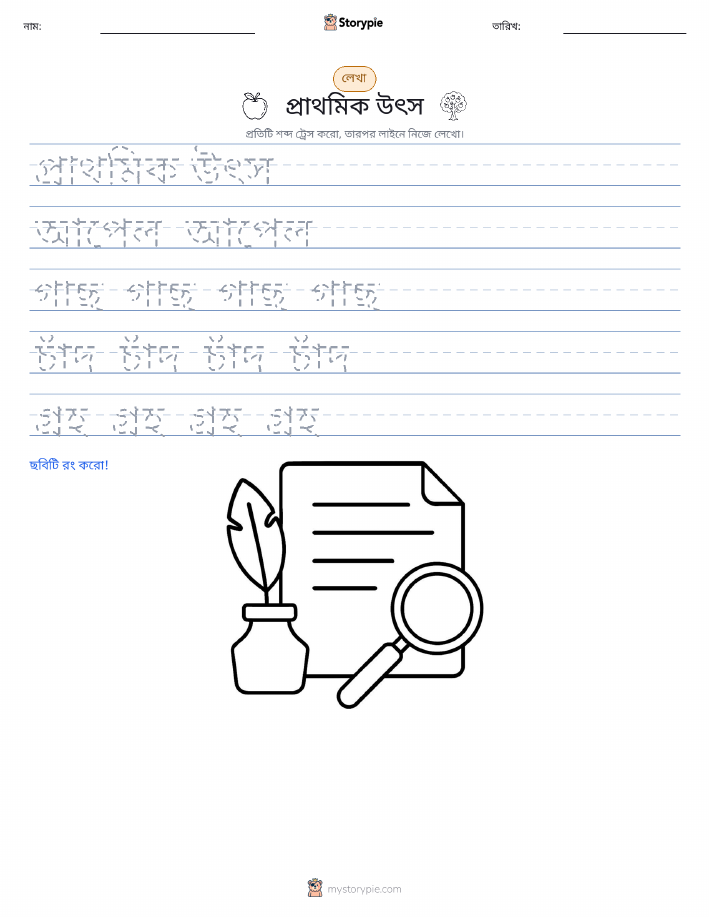 নাম:
Storypie
তারিখ:
লেখা
প্রাথমিক উৎস
প্রতিটি শব্দ ট্রেস করো, তারপর লাইনে নিজে লেখো।
প্রাথমিক উৎস
আপেল আপেল
গাছ গাছ গাছ গাছ
চাঁদ চাঁদ চাঁদ চাঁদ
গ্রহ গ্রহ গ্রহ গ্রহ
ছবিটি রং করো!
mystorypie.com